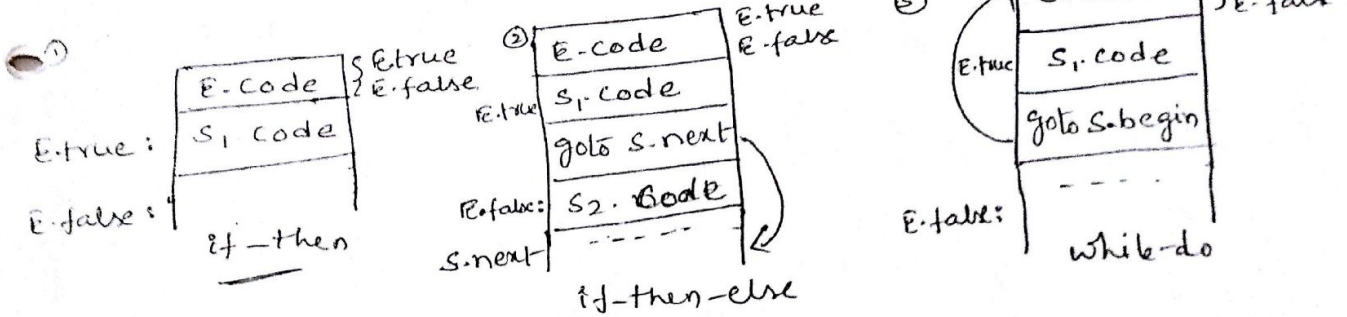 ①
E.Code
E.true
E.false
E.true :
S₁ Code
E.false :
if-then
②
E-Code
E.true
E-false
E.true
S₁. Code
goto S.next
E.false:
S2. Code
S.next
if-then-else
E.true
S₁. Code
goto S.begin
E.false:
while-do